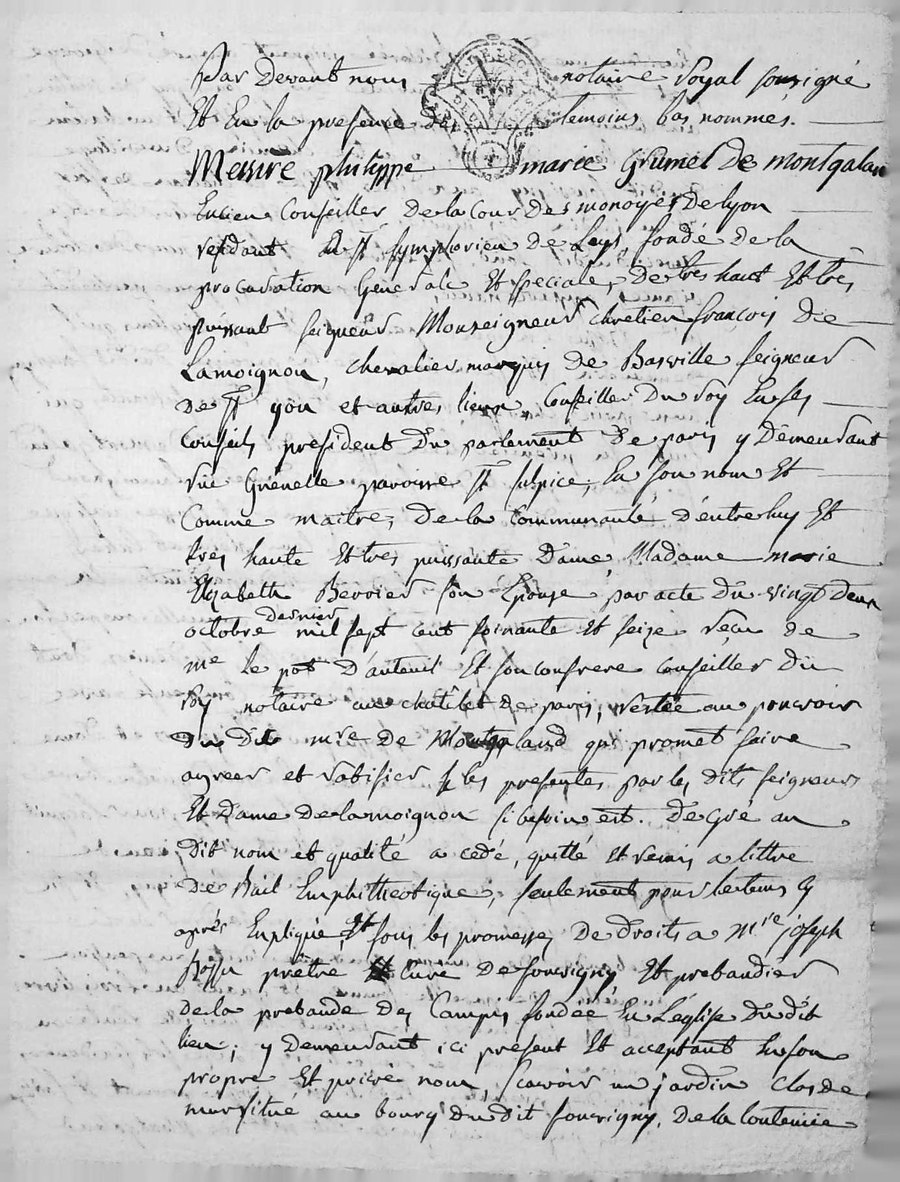 Par Devant nous notaire Royal sousigné
Et En la presence des temoins bas nommés.
Messire philippe marie Grumel de montgalan
Encien Conseiller De la Cour des monoyes De lyon
resdant a St Symphorien de Lays, fondé de la
procuration Generale Et speciale, De tres haut Et tres
puissant seigneur Monseigneur chretien francois De
Lamoignon, chevalier marquis de Basville seigneur
de St yon et autres lieux, Conseiller Du Roy En ses
Conseils president Du parlement De paris y Demeurant
rüe Grenelle paroisse St sulpice, En son nom Et
Comme maitre, De la Communauté d'entre luy Et
tres haute Et tres puissante Dame, Madame marie
Elizabeth Berrier son Epouse par acte du vingt deux
octobre dernier mil sept cent soixante Et seize recu de
me Le pot D'auteuil Et son confrere Conseiller du
Roy notaire au chatelet de paris, restée au pouvoir
Du Dit mre De Montgaland qui promet faire
agreer et ratifier les presentes par les dits seigneur
Et Dame De lamoignon si besoin est. De Gré au
Dit nom et qualité a cedé, quitté Et remis a tittre
De Bail Emphitheotique, seulement pour le temps Cy
après Expliqué, Et sous les promesses De droits a Mre joseph
prètre Curé de souvigny, Et prebandier
De la prebande Des Camps fondée En L'église Du dit
lieu, y Demeurant ici présent Et acceptant En son
propre Et privé nom, scavoir un jardin Clos de
mur situé au bourg Du Dit souvigny, De la Contenüe